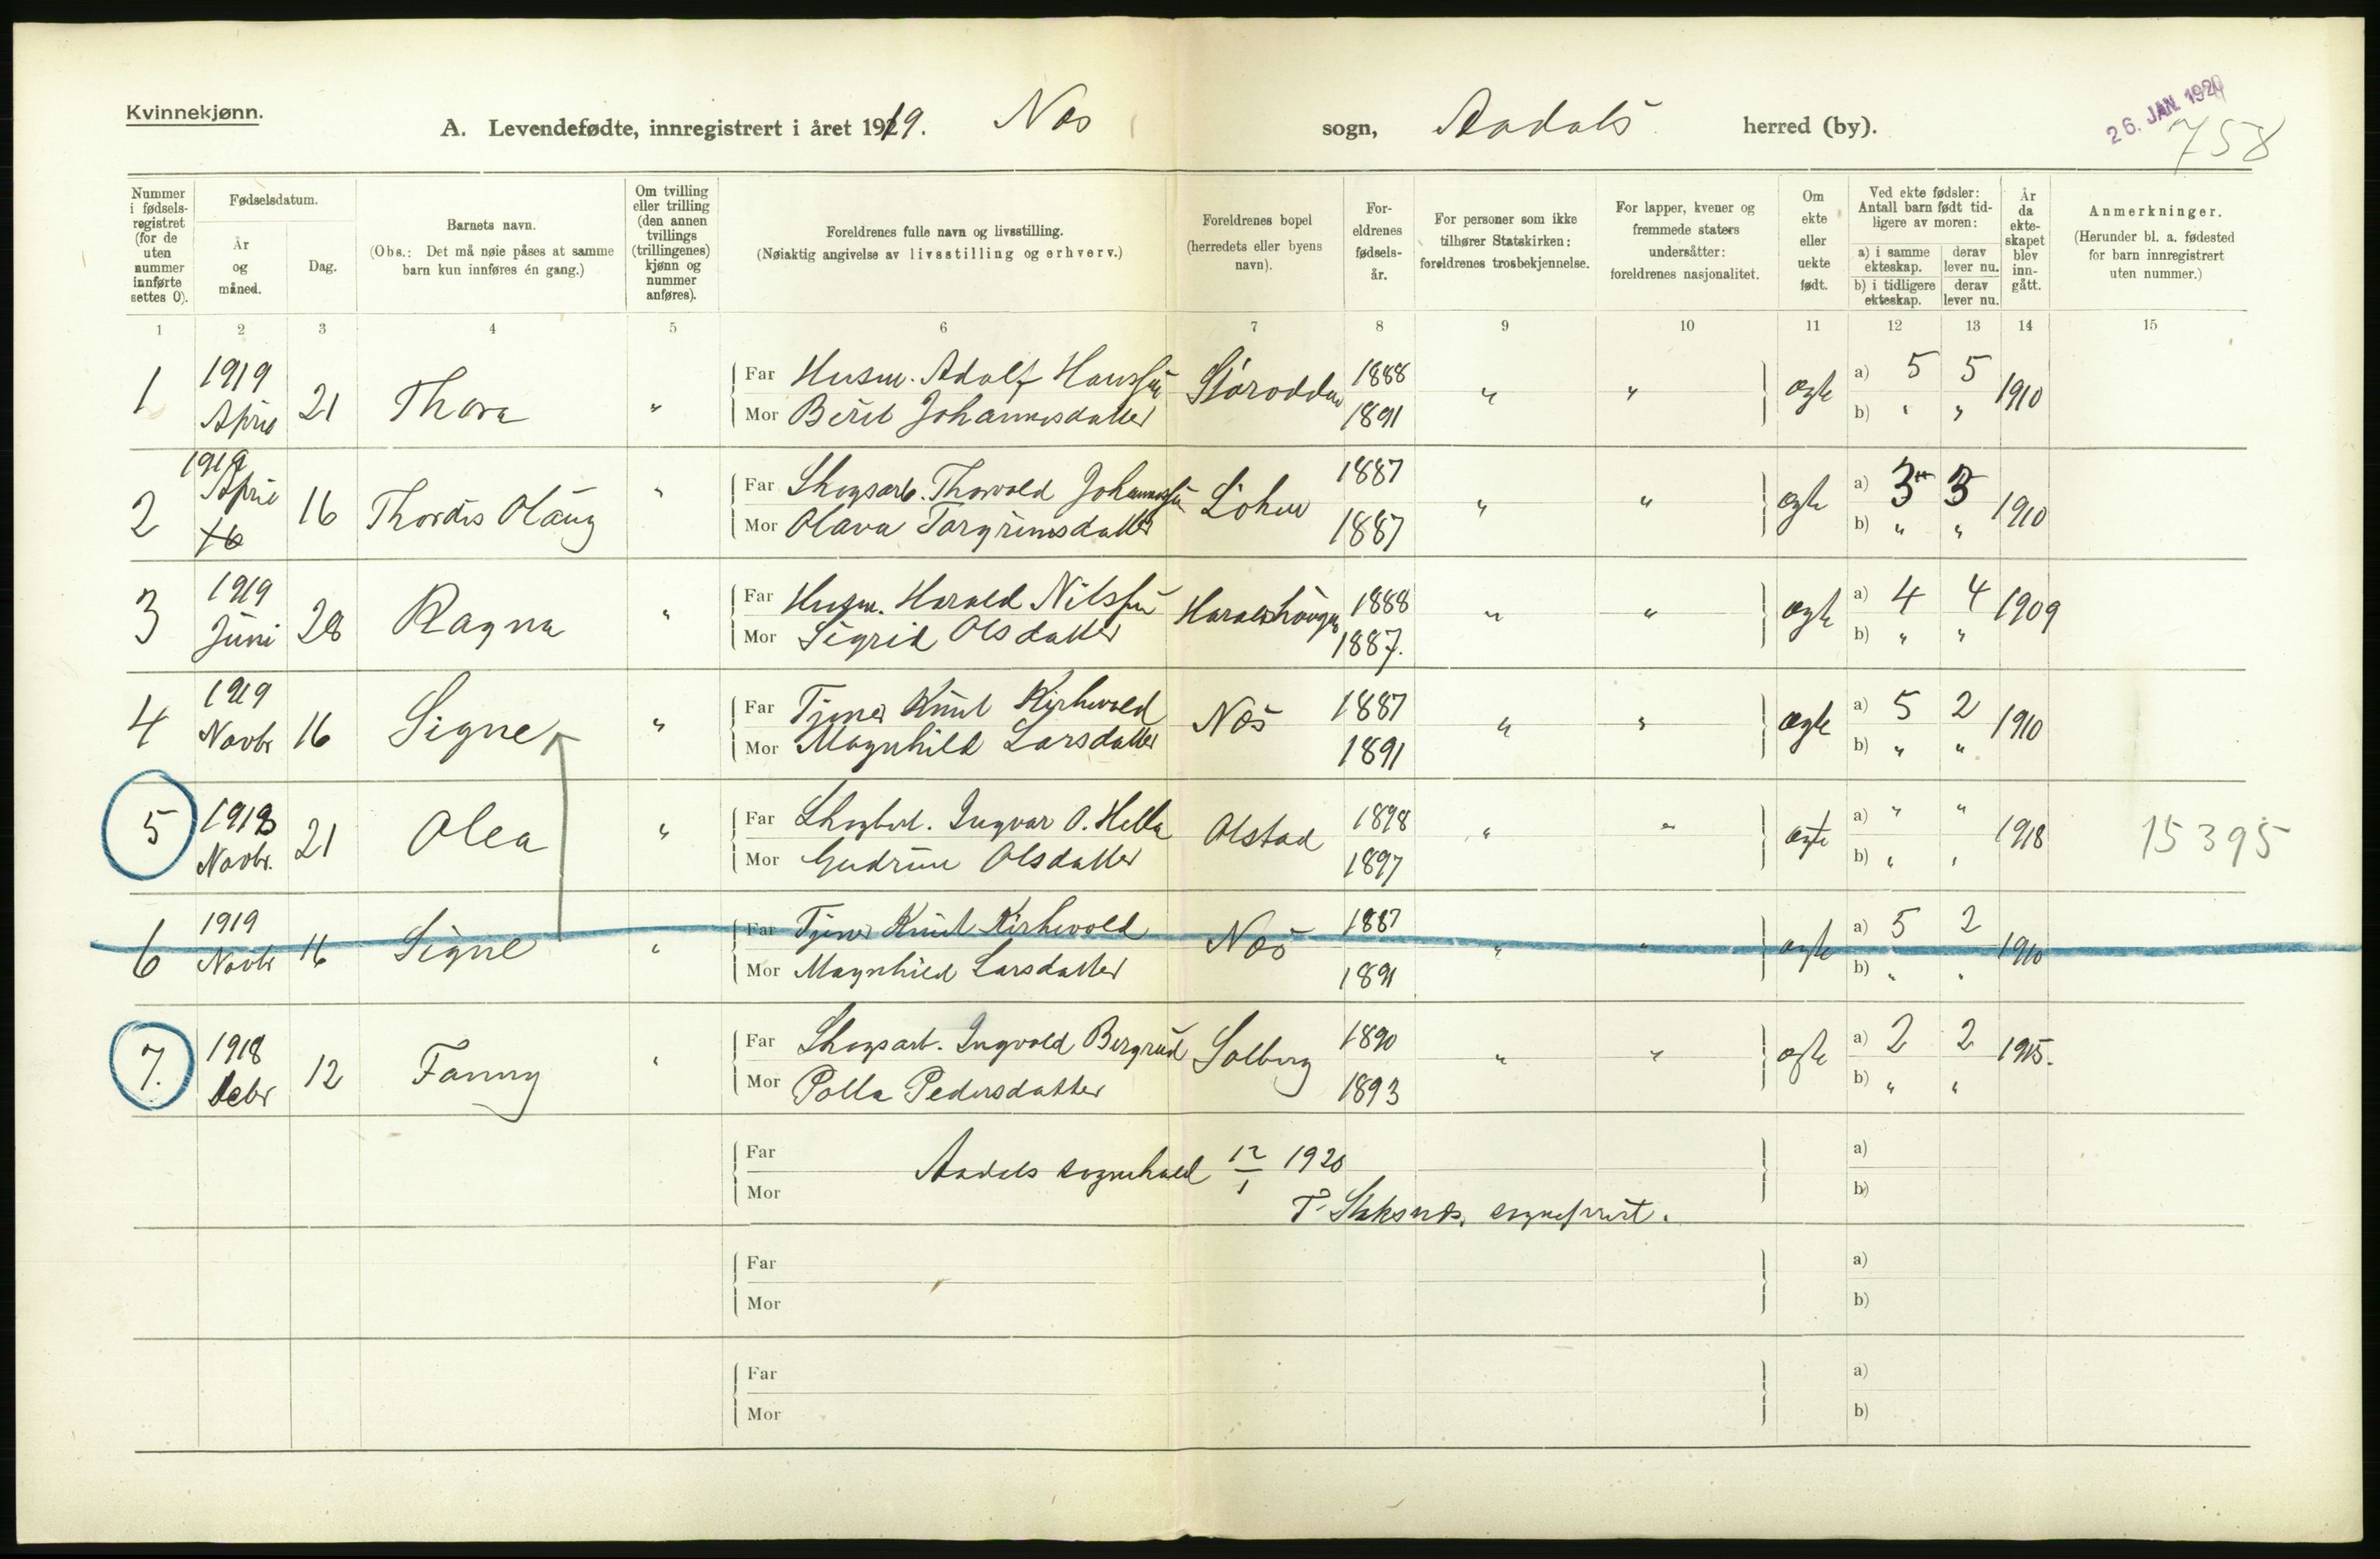 Kvinnekjønn.
A. Levendefødte, innregistrert i året 1919. Nes sogn, Aadals herred (by).
26. JAN. 1920
758
Nummer i fødselsregistret (for de uten nummer innførte settes 0).
Fødselsdatum.
År og måned.
Dag.
Barnets navn.
(Obs.: Det må nøie påses at samme barn kun innføres én gang.)
Om tvilling eller trilling (den annen tvillings (trillingenes) kjønn og nummer anføres).
Foreldrenes fulle navn og livsstilling.
(Nøiaktig angivelse av livsstilling og erhverv.)
Foreldrenes bopel (herredets eller byens navn).
Foreldrenes fødselsår.
For personer som ikke tilhører Statskirken: foreldrenes trosbekjennelse.
For lapper, kvener og fremmede staters undersåtter: foreldrenes nasjonalitet.
Om ekte eller uekte født.
Ved ekte fødsler: Antall barn født tidligere av moren:
a) i samme ekteskap. derav lever nu.
b) i tidligere ekteskap. derav lever nu.
År da ekteskapet blev inngått.
Anmerkninger.
(Herunder bl. a. fødested for barn innregistrert uten nummer.)
1 2 3 4 5 6 7 8 9 10 11 12 13 14 15
1 1919 April 21 Thora " Far Husm. Adolf Hanssøn Storodden 1888 " " ægte a) 5 5 1910
Mor Berit Johannesdatter 1891 b) " "
2 1919 April 16 16 Thordis Olaug " Far Skogsarb. Thorvald Johannessøn 1887 " " ægte a) 3 3 1910
Mor Olava Torgrimsdatter 1887 b) " "
3 1919 Juni 28 Ragna " Far Husm. Harald Nilssøn Haraldshaugen 1888 " " ægte a) 4 4 1909
Mor Sigrid Olsdatter 1887. b) " "
4 1919 Novbr 16 Signe " Far Tjener Knut Kirkevold Nes 1887 " " ægte a) 5 2 1910
Mor Magnhild Larsdatter 1891 b) " "
5 1918 Novbr. 21 Olea " Far Ingvar O. Hella Olstad 1898 " " ægte a) " " 1918 15395
Mor Gudrun Olsdatter 1897 b) " "
6 1919 Novbr 16 Signe " Far Tjener Knut Kirkevold Nes 1887 " " ægte a) 5 2 1910
Mor Magnhild Larsdatter 1891 b) " "
7. 1918 Debr 12 Fanny " Far Skogsarb. Ingvald Bergrud Solberg 1890 " " ægte a) 2 2 1915.
Mor Polla Pedersdatter 1893 b) " "
Far Aadals sognekald 12/1 1920 a)
Mor T. sogneprest. b)
Far a)
Mor b)
Far a)
Mor b)